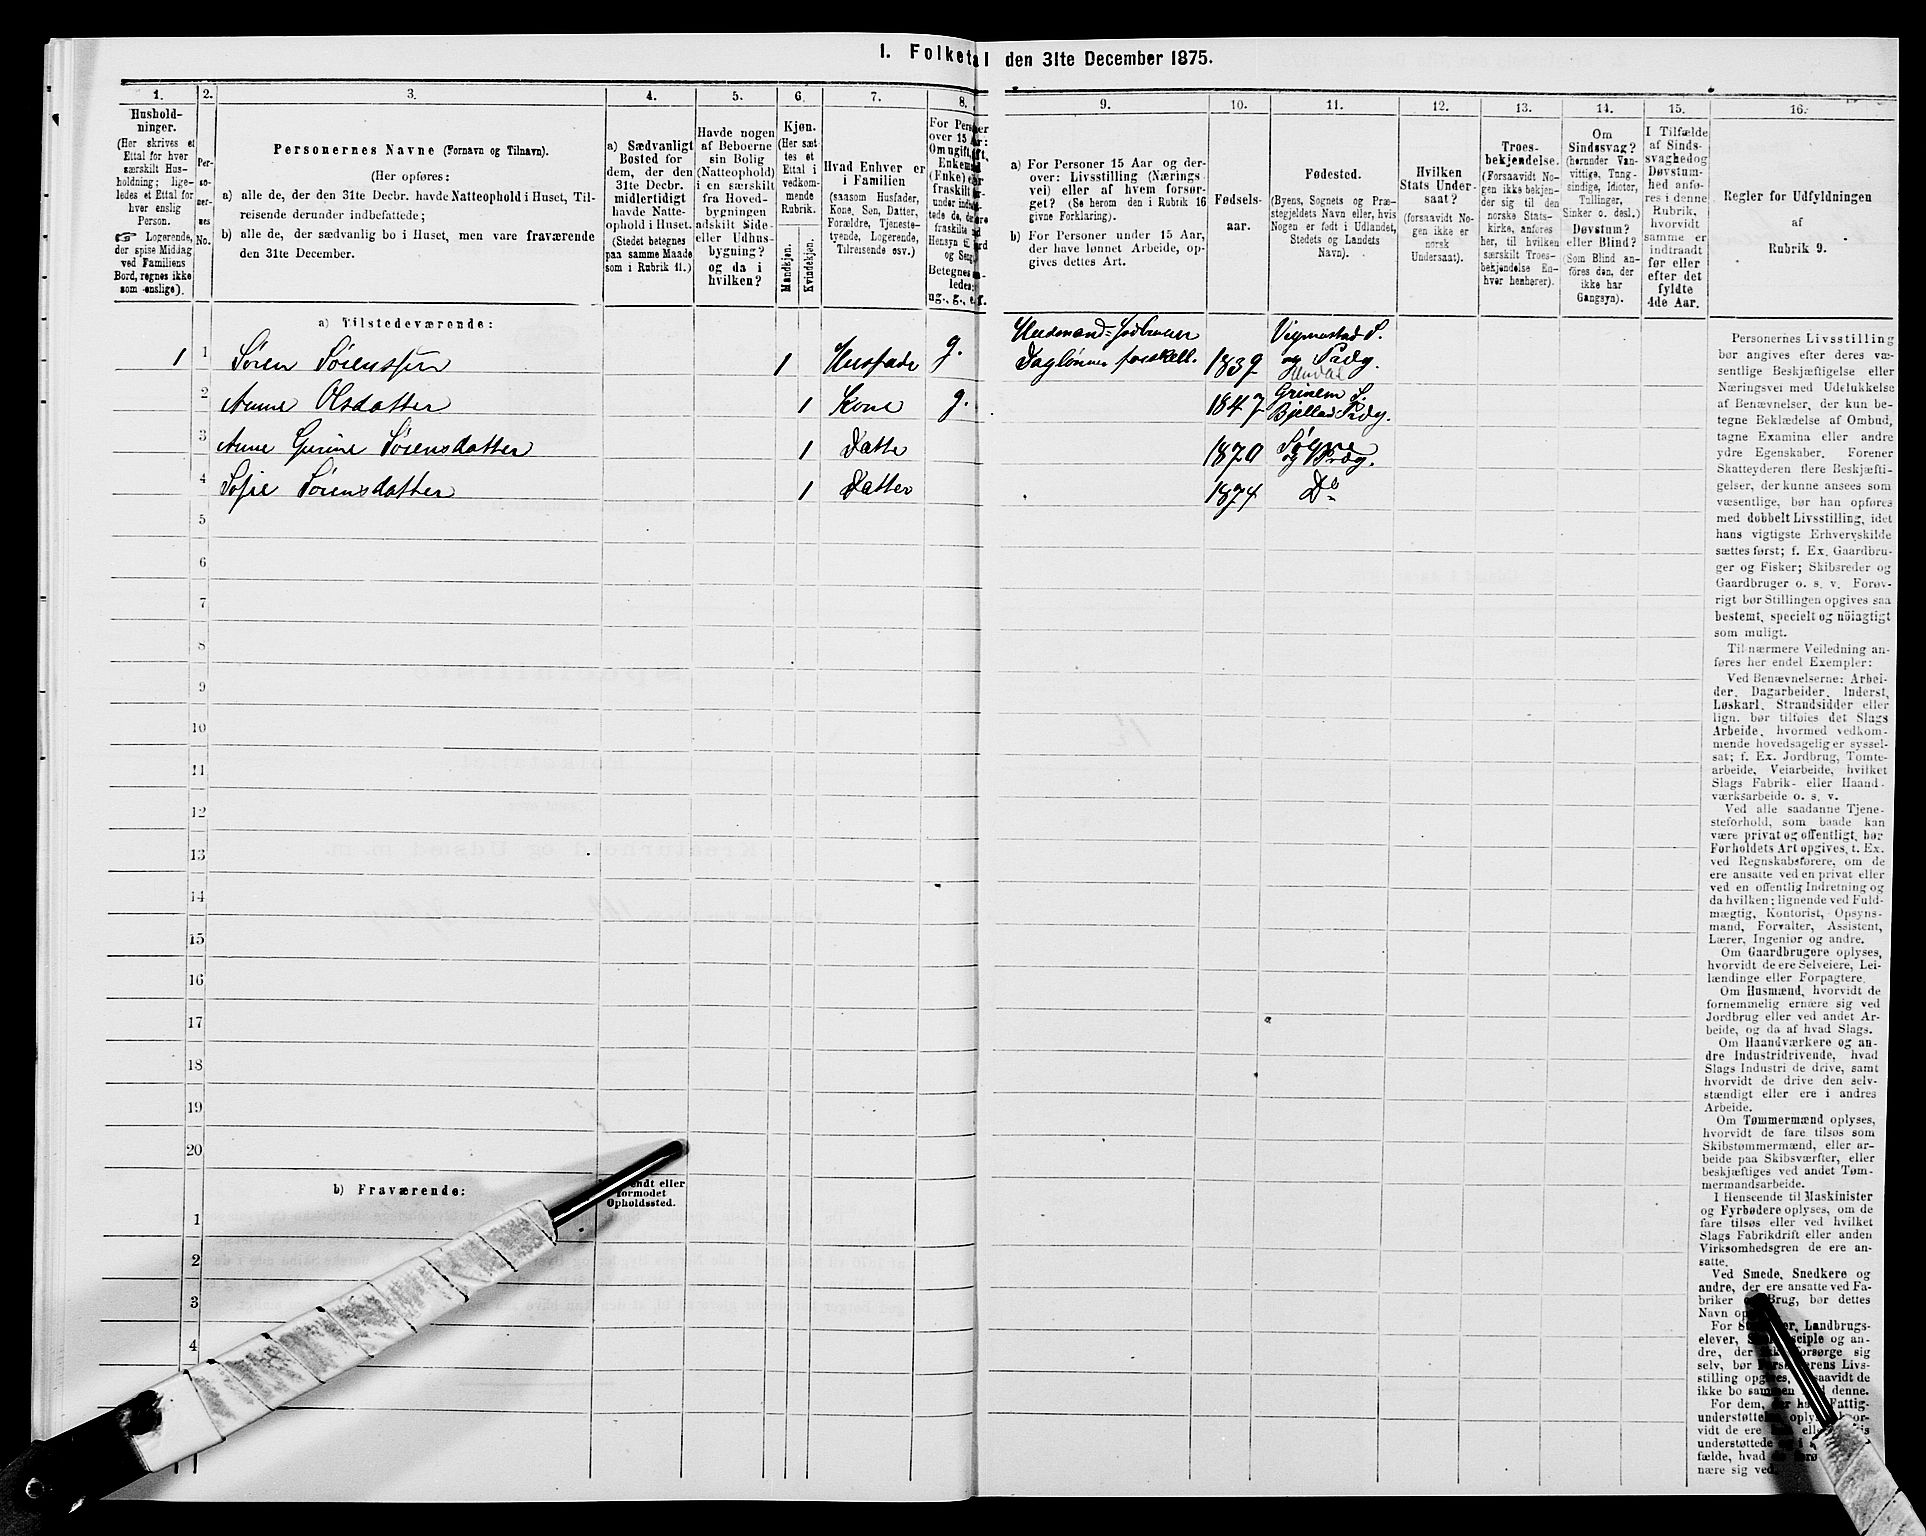 1. Folketal den 31te December 1875.
1.
Hushold-
ninger.
(Her skrives et
Ettal for hver
særskilt Hus-
holdning; lige-
ledes et Ettal for
hver enslig
Person.
☞ Logerende,
der spise Middag
ved Familiens
Bord, regnes ikke
som enslige).
2.
Per-
so-
ner-
nes
No.
3.
Personernes Navne (Fornavn og Tilnavn).
(Her opføres:
a) alle de, der den 31te Decbr. havde Natteophold i Huset, Til-
reisende derunder indbefattede;
b) alle de, der sædvanlig bo i Huset, men vare fraværende
den 31te December.
4.
a) Sædvanligt
Bosted for
dem, der den
31te Decbr.
midlertidigt
havde Natte-
ophold i Huset.
(Stedet betegnes
paa samme Maade
som i Rubrik 11.)
5.
Havde nogen
af Beboerne
sin Bolig
(Natteophold)
i en særskilt
fra Hoved-
bygningen
adskilt Side-
eller Udhus-
bygning?
og da i
hvilken?
6.
Kjøn.
(Her sæt
tes et
Ettal i
vedkom-
mende
Rubrik.
Mandkjøn.
Kvindekjøn.
7.
Hvad Enhver er
i Familien
(saasom Husfader,
Kone, Søn, Datter,
Forældre, Tjeneste-
tyende, Logerende,
Tilreisende osv.)
8.
For Personer
over 15 Aar:
Om ugift, gift,
Enkemand
(Enke) eller
fraskilt
og Seng.
Betegnes
ledes:
ug., g., e., f.
9.
a) For Personer 15 Aar og der-
over: Livsstilling (Nærings
vei) eller af hvem forsør-
get? (Se herom den i Rubrik 16
givne Forklaring).
b) For Personer under 15 Aar,
der have lønnet Arbeide, op-
gives dettes Art.
10.
Fødsels-
aar.
11.
Fødested.
(Byens, Sognets og Præ-
stegjeldets Navn eller, hvis
Nogen er født i Udlandet,
Stedets og Landets
Navn).
12.
Hvilken
Stats Under-
saat?
(forsaavidt No-
gen ikke er
norsk
Undersaat).
13.
Troes-
bekjendelse.
(Forsaavidt No-
gen ikke bekjen-
der sig til den
norske Stats-
kirke, anføres
her, til hvilken
særskilt Troes-
bekjendelse En-
hver henhører).
14.
Om
Sindssvag?
(herunder Van-
vittige, Tung-
sindige, Idioter,
Tullinger,
Sinker o. desl.)
Døvstum?
eller Blind?
(Som Blind an-
føres den, der
ikke har
Gangsyn).
15.
I Tilfælde
af Sinds-
svaghed og
Døvstum-
hed anfø-
res i denne
Rubrik,
hvorvidt
samme er
indtraadt
før eller
efter det
fyldte
4de Aar.
16.
Regler for Udfyldningen
af
Rubrik 9.
a) Tilstedeværende:
1 1 Søren Sørenssen 1 Husfader g. Husmand = Jordbruger Dagløner forskell. 1839 Vigmostad S. og Prdg.
2 Anne Olsdatter 1 Kone g. 1847 Grinem S. Bjelland Prdg.
3 Anne Gurine Sørensdatter 1 Datte 1870 Søgne og Prdg.
4 Sofie Sørensdatter 1 Datter 1874 Do
5
6
7
8
9
10
11
12
13
14
15
16
17
18
19
20
b) Fraværende:
formodet
Opholdssted.
1
2
3
4
Personernes Livsstilling
bør angives efter deres væ-
sentlige Beskjæftigelse eller
Næringsvei med Udelukkelse
af Benævnelser, der kun be-
tegne Beklædelse af Ombud,
tagne Examina eller andre
ydre Egenskaber. Forener
Skatteyderen flere Beskjæfti-
gelser, der kunne ansees som
væsentlige, bør han opføres
med dobbelt Livsstilling, idet
hans vigtigste Erhvervskilde
sættes først; f. Ex. Gaardbru-
ger og Fisker; Skibsreder og
Gaardbruger o. s. v. Forøv-
rigt bør Stillingen opgives saa
bestemt, specielt og nöiagtigt
som muligt.
Til nærmere Veiledning an-
føres her endel Exempler:
Ved Benævnelserne: Arbei-
der, Dagarbeider, Inderst,
Løskarl, Strandsidder eller
lign. bør tilføies det Slags
Arbeide, hvormed vedkom-
mende hovedsagelig er syssel-
sat; f. Ex. Jordbrug, Tomte-
arbeide, Veiarbeide, hvilket
Slags Fabrik- eller Haand-
værksarbeide o. s. v.
Ved alle saadanne Tjene-
steforhold, som baade kan
være privat og offentligt, bør
Forholdets Art opgives, t. Ex.
ved Regnskabsførere, om de
ere ansatte ved en privat eller
ved en offentlig Indretning og
da hvilken; lignende ved Fuld-
mægtig, Kontorist, Opsyns-
mand, Forvalter, Assistent,
Lærer, Ingeniør og andre.
Om Gaardbrugere oplyses,
hvorvidt de ere Selveiere, Lei-
lændinge eller Forpagtere.
Om Husmænd, hvorvidt de
fornemmelig ernære sig ved
Jordbrug eller ved andet Ar-
beide, og da af hvad Slags.
Om Haandværkere og an-
dre Industridrivende, hvad
Slags Industri de drive, samt
hvorvidt de drive den selv-
stændigt eller ere i andres
Arbeide.
Om Tømmermænd oplyses,
hvorvidt de fare tilsøs som
Skibstømmermænd, eller ar-
beide paa Skibsværfter, eller
beskjæftiges ved andet Tøm-
mermandsarbeide.
I Henseende til Maskinister
og Fyrbødere oplyses, om de
fare tilsøs eller ved hvilket
Slags Fabrikdrift eller anden
Virksomhedsgren de ere an-
satte.
Ved Smede, Snedkere og
andre, der ere ansatte ved Fa-
briker Brug, bør dettes
Navn
For Landbrugs-
elever, og an-
dre, der sig
selv, bør Livs-
stilling saavidt de
ikke bo denne.
For dem, Fattig-
understøttelse
vidt de ere
understøttede
fælde, hvad
nære sig ved.